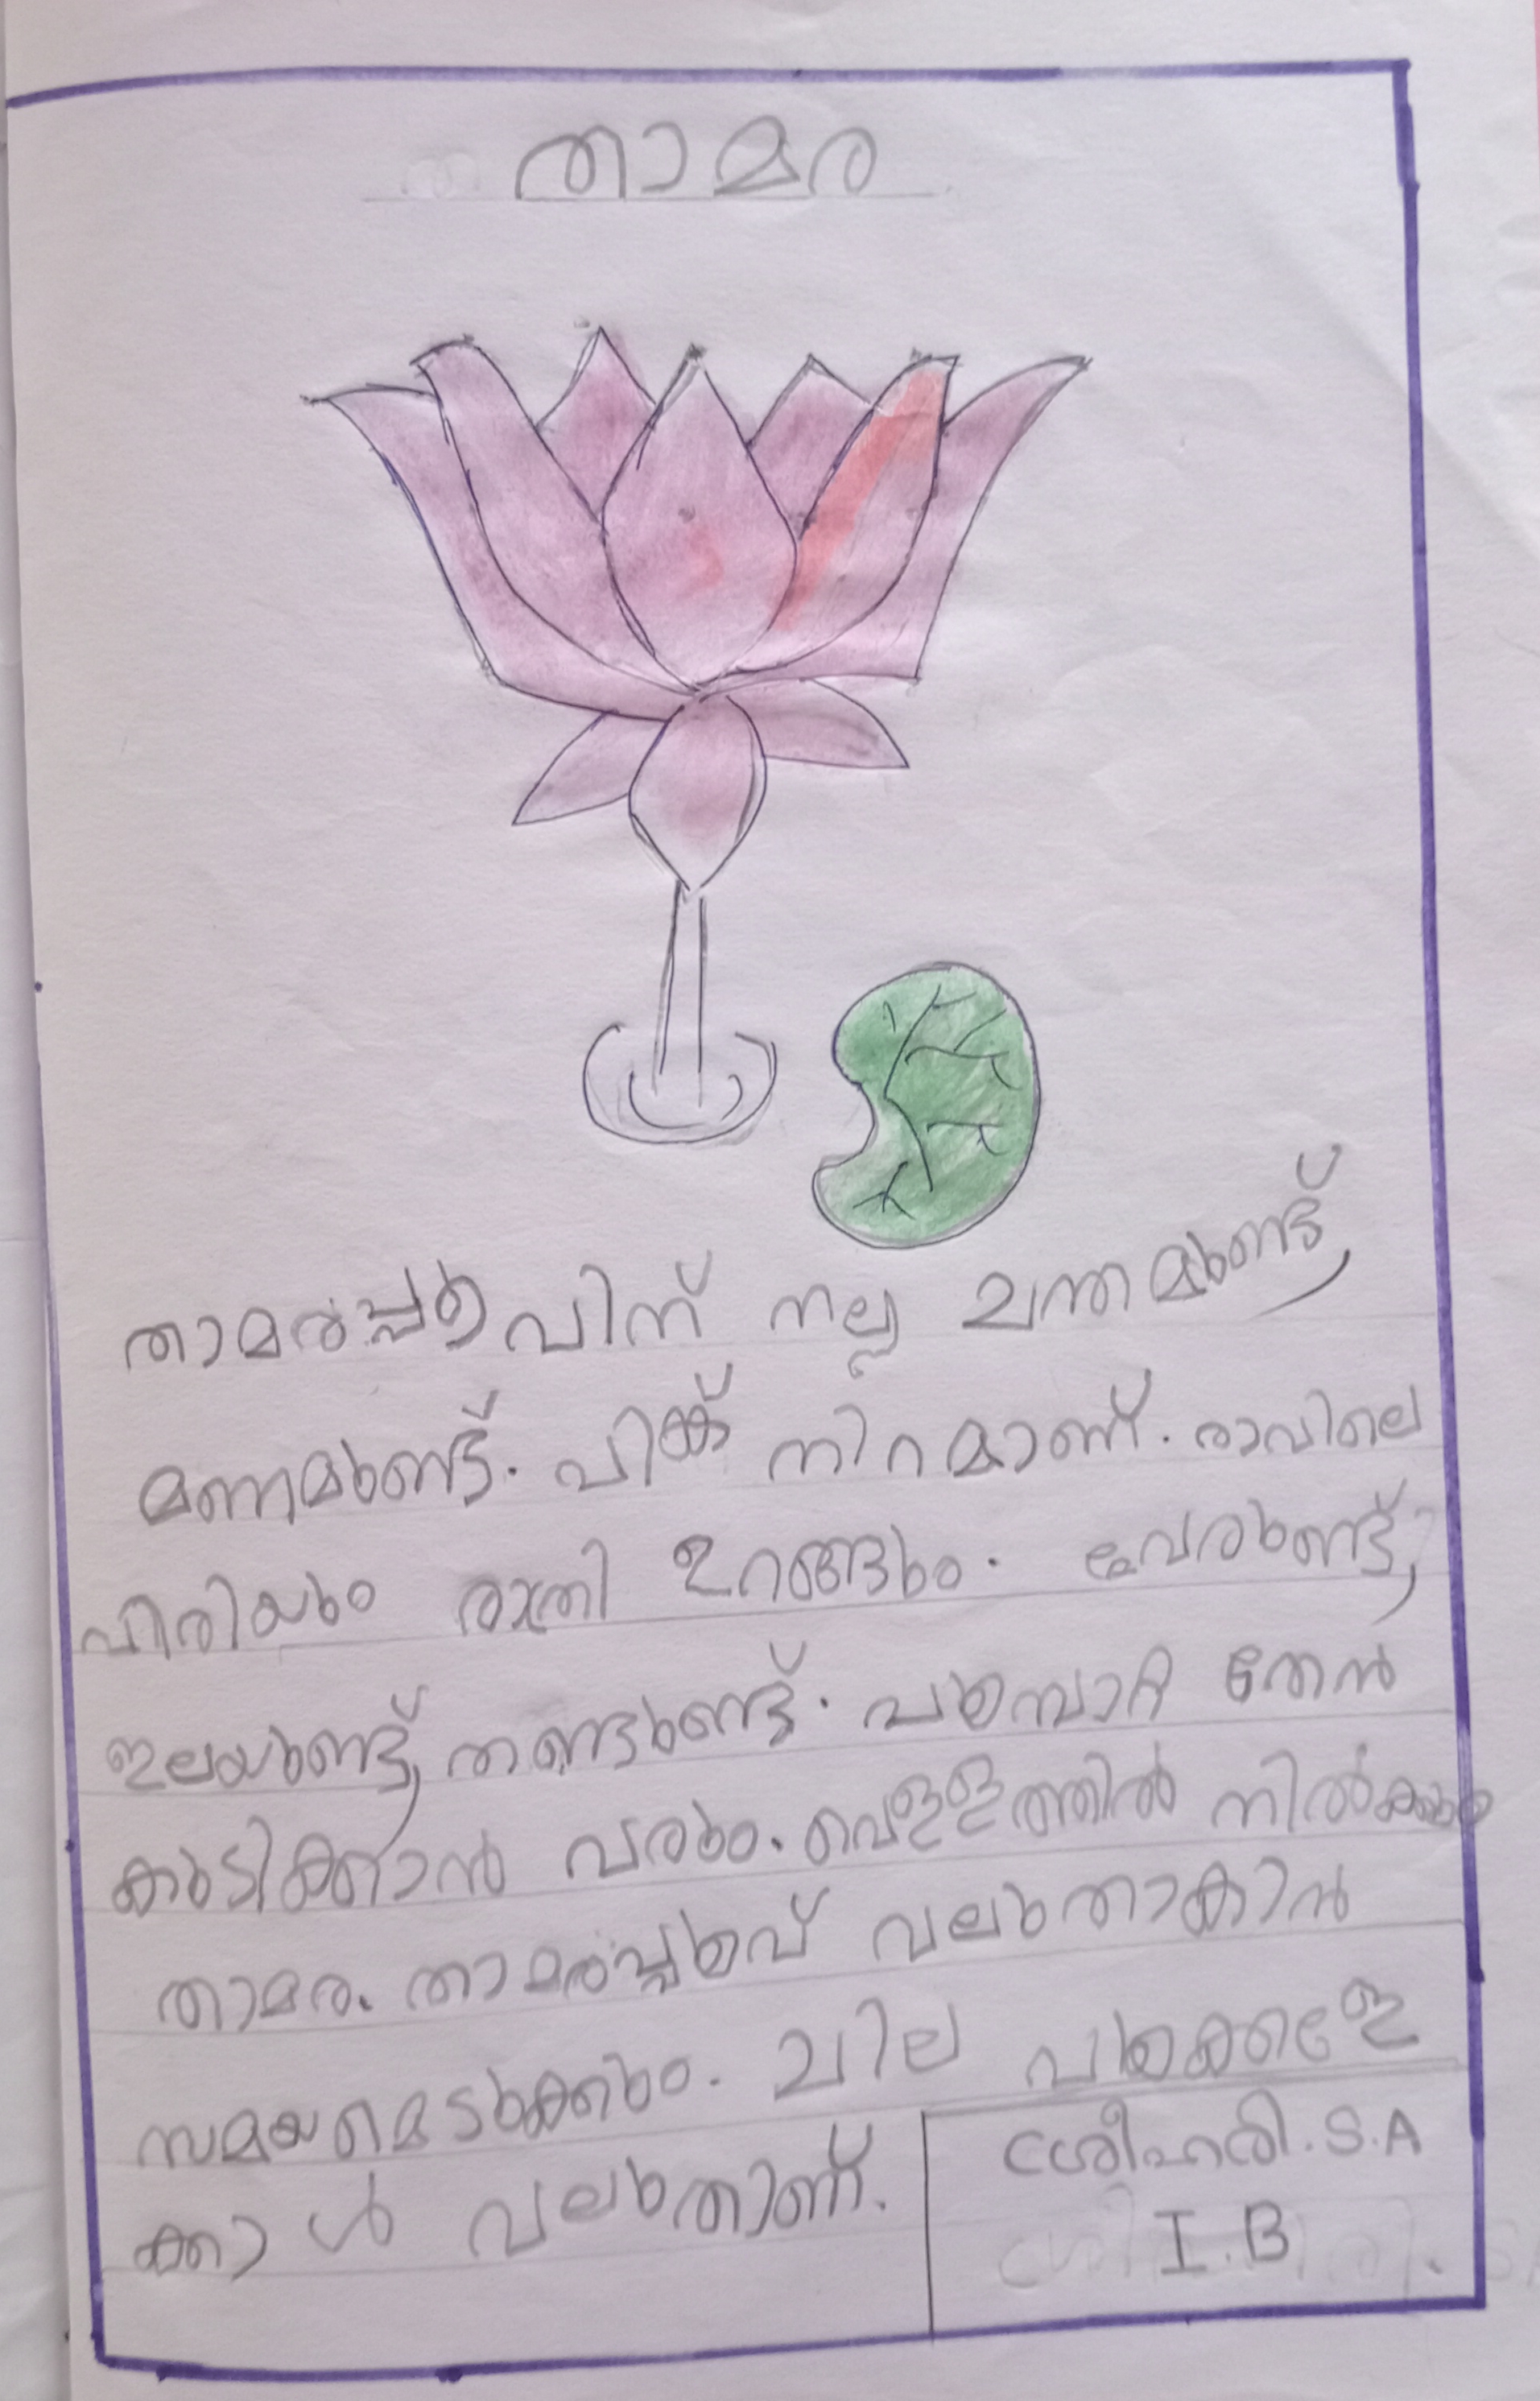 താമര
താമരപ്പൂവിന് നല്ല ചന്തമുണ്ട്,
മണമുണ്ട്. പിങ്ക് നിറമാണ്. രാവിലെ
വിരിയും രാത്രി ഉറങ്ങും. വേരുണ്ട്,
ഇലയുണ്ട്, തണ്ടുണ്ട്. പൂമ്പാറ്റ തേൻ
കുടിക്കാൻ വരും. വെള്ളത്തിൽ നിൽക്കും
താമര. താമരപ്പൂവ് വലുതാകാൻ
സമയമെടുക്കും. ചില പൂക്കളേ
ക്കാൾ വലുതാണ്.
ശ്രീഹരി. S.A
I. B